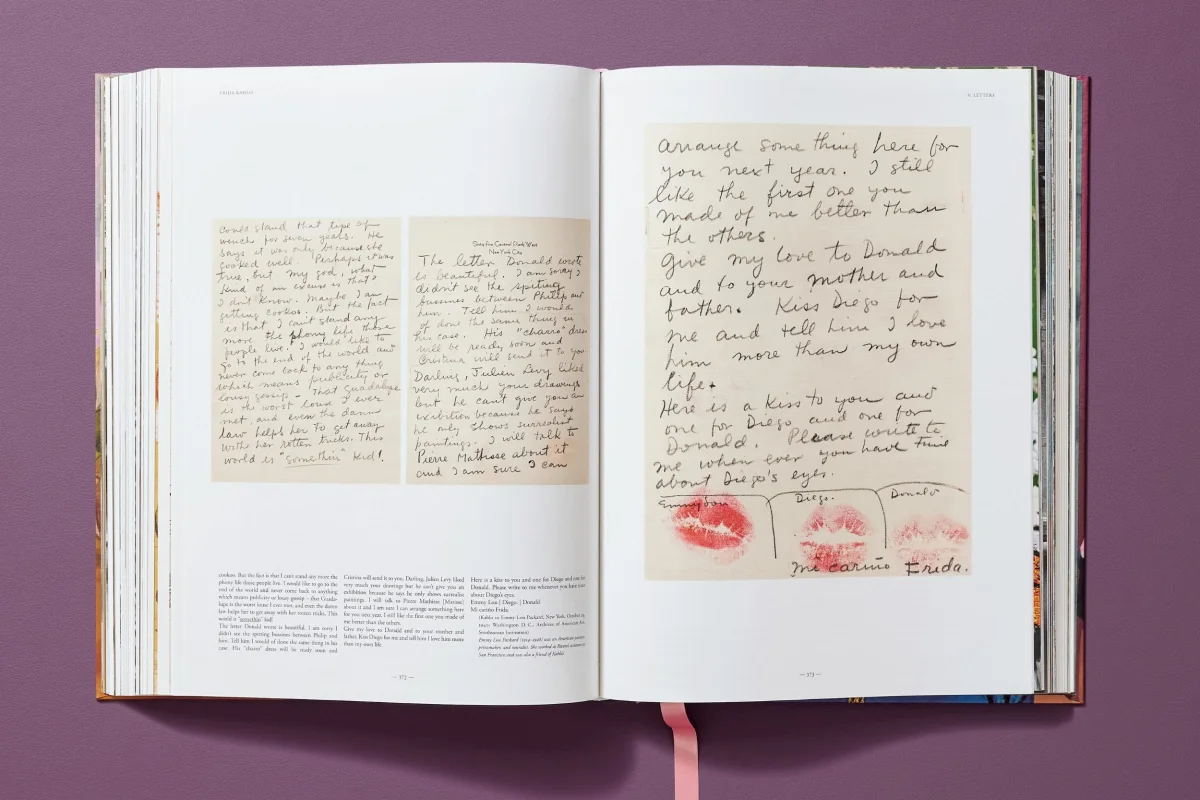 FRIDA KAHLO
could stand that type of
wench for seven years. He
says it was only because she
cooked well. Perhaps it was
true, but my god, what
kind of an excuse is that?
I don't know. Maybe I am
getting cookoo. But the fact
is that I can't stand any
more the phony life those
people live. I would like to
go to the end of the world and
never come back to any thing
which means publicity or
lousy gossip - That Guadalupe
is the worst louse I ever
met, and even the damn
law helps her to get away
with her rotten tricks. This
world is "somethin" Kid!
Sixty-five Central Park West
New York City
The letter Donald wrote
is beautiful. I am sorry I
didn't see the spiting
bussines between Philip and
him. Tell him I would
of done the same thing in
his case. His "charro" dress
will be ready soon and
Cristina will send it to you
Darling, Julien Levy liked
very much your drawings
but he can't give you an
exibition because he says
he only shows surrealist
paintings. I will talk to
Pierre Mattisse about it
and I am sure I can
cookoo. But the fact is that I can't stand any more the
phony life those people live. I would like to go to the
end of the world and never come back to anything
which means publicity or lousy gossip – that Guada-
lupe is the worst louse I ever met, and even the damn
law helps her to get away with her rotten tricks. This
world is "somethin" kid!
The letter Donald wrote is beautiful. I am sorry I
didn't see the spetting bussines between Philip and
him. Tell him I would of done the same thing in his
case. His "charro" dress will be ready soon and
Cristina will send it to you. Darling, Julien Levy liked
very much your drawings but he can't give you an
exhibition because he says he only shows surrealist
paintings. I will talk to Pierre Matisse [Matisse]
about it and I am sure I can arrange something here
for you next year. I still like the first one you made of
me better than the others.
Give my love to Donald and to your mother and
father. Kiss Diego for me and tell him I love him more
than my own life.
Here is a kiss to you and one for Diego and one for
Donald. Please write to me whenever you have time
about Diego's eyes.
Emmy Lou | Diego | Donald
Mi cariño Frida.
(Kahlo to Emmy Lou Packard, New York, October
Washington D. C., Archives of American Art,
Smithsonian Institution)
Emmy Lou Packard was an American painter,
printmaker, and muralist. She worked as Rivera's assistant in
San Francisco and was also a friend of Kahlo's.
— 372 —
V. LETTERS
arrange some thing here for
you next year. I still
like the first one you
made of me better than
the others.
Give my love to Donald
and to your mother and
father. Kiss Diego for
me and tell him I love
him more than my own
life.
Here is a kiss to you and
one for Diego and one for
Donald. Please write to
me when ever you have time
about Diego's eyes.
Emmylou
Diego.
Donald
Mi cariño Frida.
— 373 —